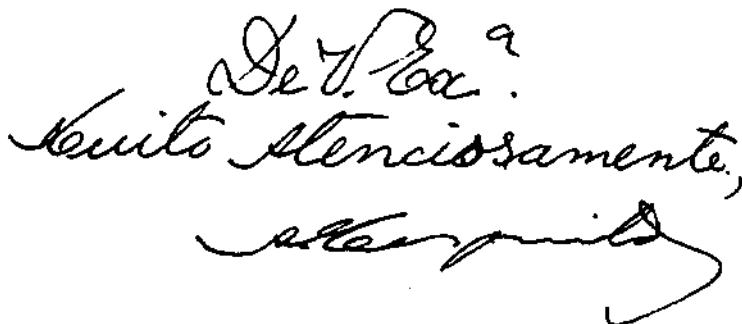 De V. Exª.
Muito Atenciosamente,